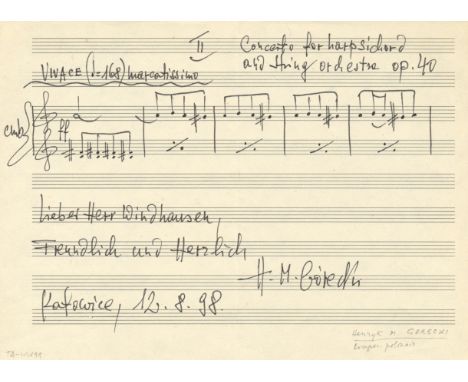 II
Concerto for harpsichord
and String orchestra op. 40
VIVACE (♩=168) marcatissimo
ff
Lieber Herr Windhausen,
Freundlich und Herzlich
H. M. Górecki
Katowice, 12. 8. 98.
Henryk M GORECKI